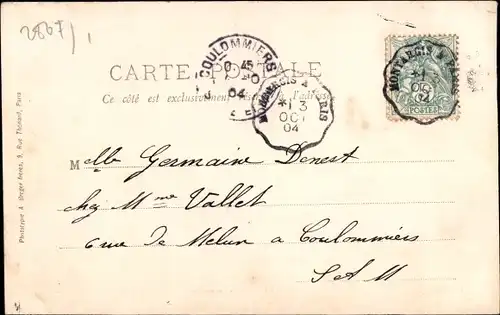 2867/1
COULOMMIERS
9 45
04
CARTE POSTALE
Ce côté est exclusivement réservé à l'adresse
MONTARGIS A PARIS
*1 3
OCT
04
MONTARGIS A PARIS
*1
OCT
04
POSTES
Melle Germaine Denest
chez Mme Vallet
6 rue de Melun a Coulommiers
S A M
Phototypie A. Berger frères, 9, Rue Thénard, Paris